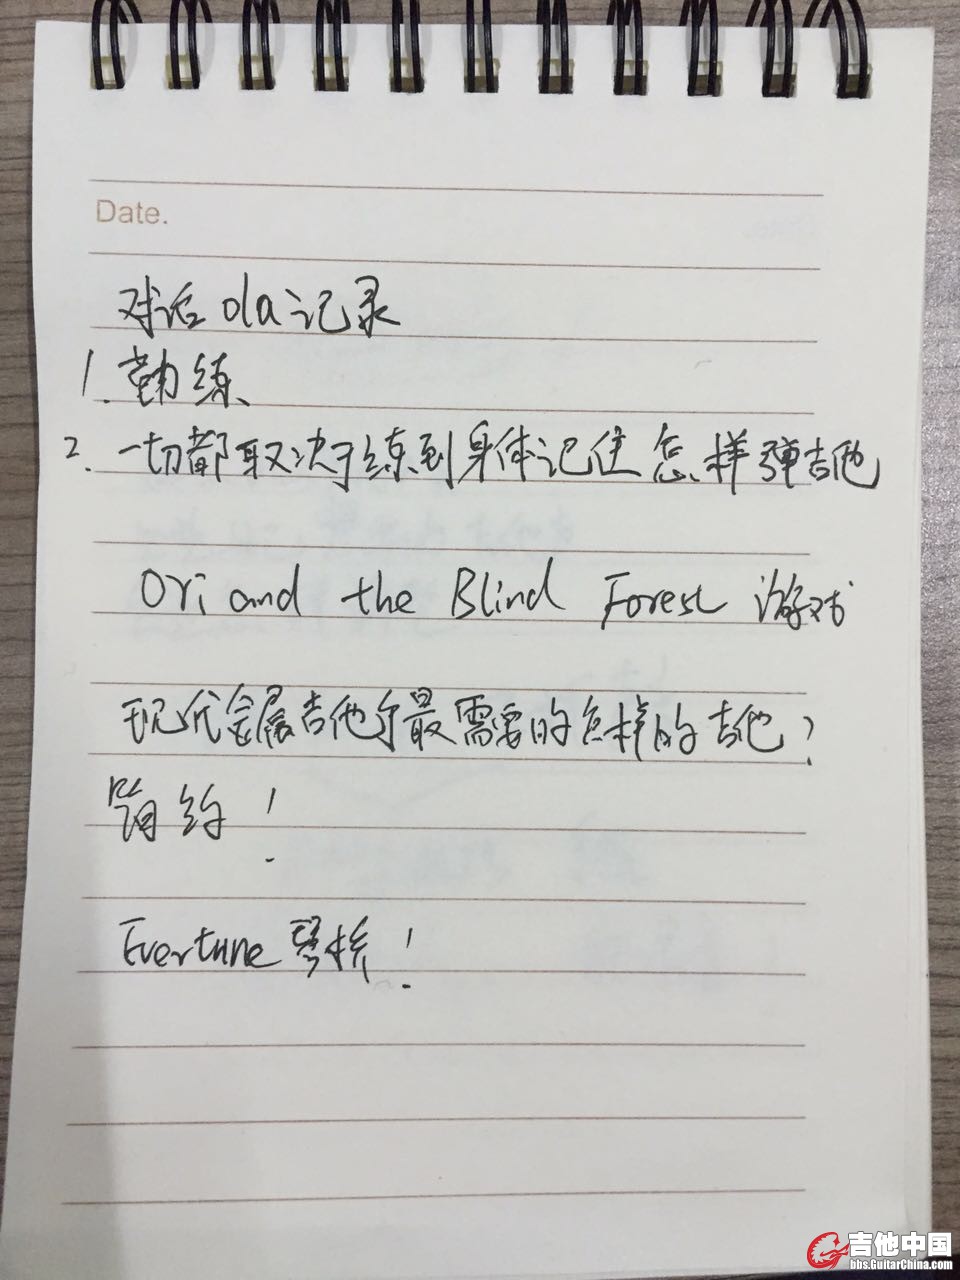 Date.
对话ola记录
1. 勤练
2. 一切都取决于练到身体记住怎样弹吉他
Ori and the Blind Forest 游戏
现代金属吉他手最需要的怎样的吉他？
简约！
Evertune琴桥！
吉他中国
bbs.GuitarChina.com